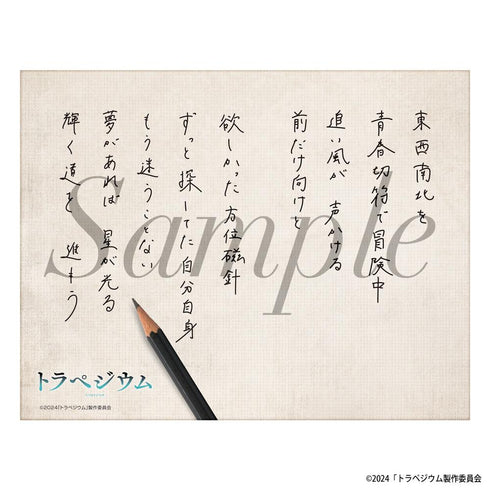 東西南北を
青春切符で冒険中
追い風が 声かける
前だけ向けと
欲しかった 方位磁針
ずっと探してた自分自身
もう迷うことない
夢があれば 星が光る
輝く道を 進もう
Sample
トラペジウム
©2024「トラペジウム」製作委員会
©2024「トラペジウム製作委員会